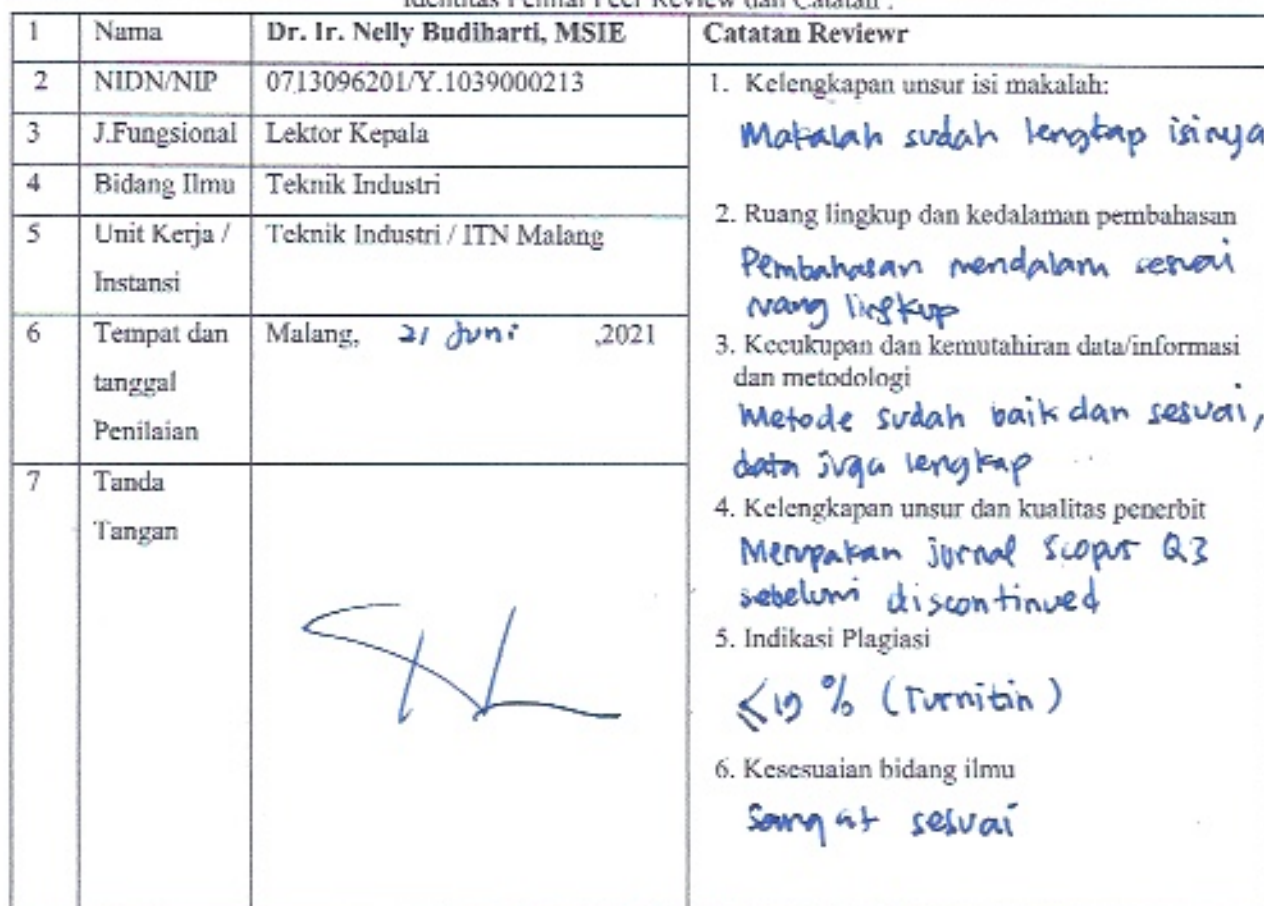 Identitas Penilai Peer Review dan Catatan :
1 Nama Dr. Ir. Nelly Budiharti, MSIE
2 NIDN/NIP 0713096201/Y.1039000213
3 J.Fungsional Lektor Kepala
4 Bidang Ilmu Teknik Industri
5 Unit Kerja / Teknik Industri / ITN Malang
Instansi
6 Tempat dan Malang, 21 Juni ,2021
tanggal
Penilaian
7 Tanda
Tangan
Catatan Reviewr
1. Kelengkapan unsur isi makalah:
Makalah sudah lengkap isinya
2. Ruang lingkup dan kedalaman pembahasan
Pembahasan mendalam sesuai
ruang lingkup
3. Kecukupan dan kemutahiran data/informasi
dan metodologi
Metode sudah baik dan sesuai,
data juga lengkap
4. Kelengkapan unsur dan kualitas penerbit
Merupakan jurnal Scopus Q3
sebelum discontinued
5. Indikasi Plagiasi
% (Turnitin)
6. Kesesuaian bidang ilmu
Sangat sesuai